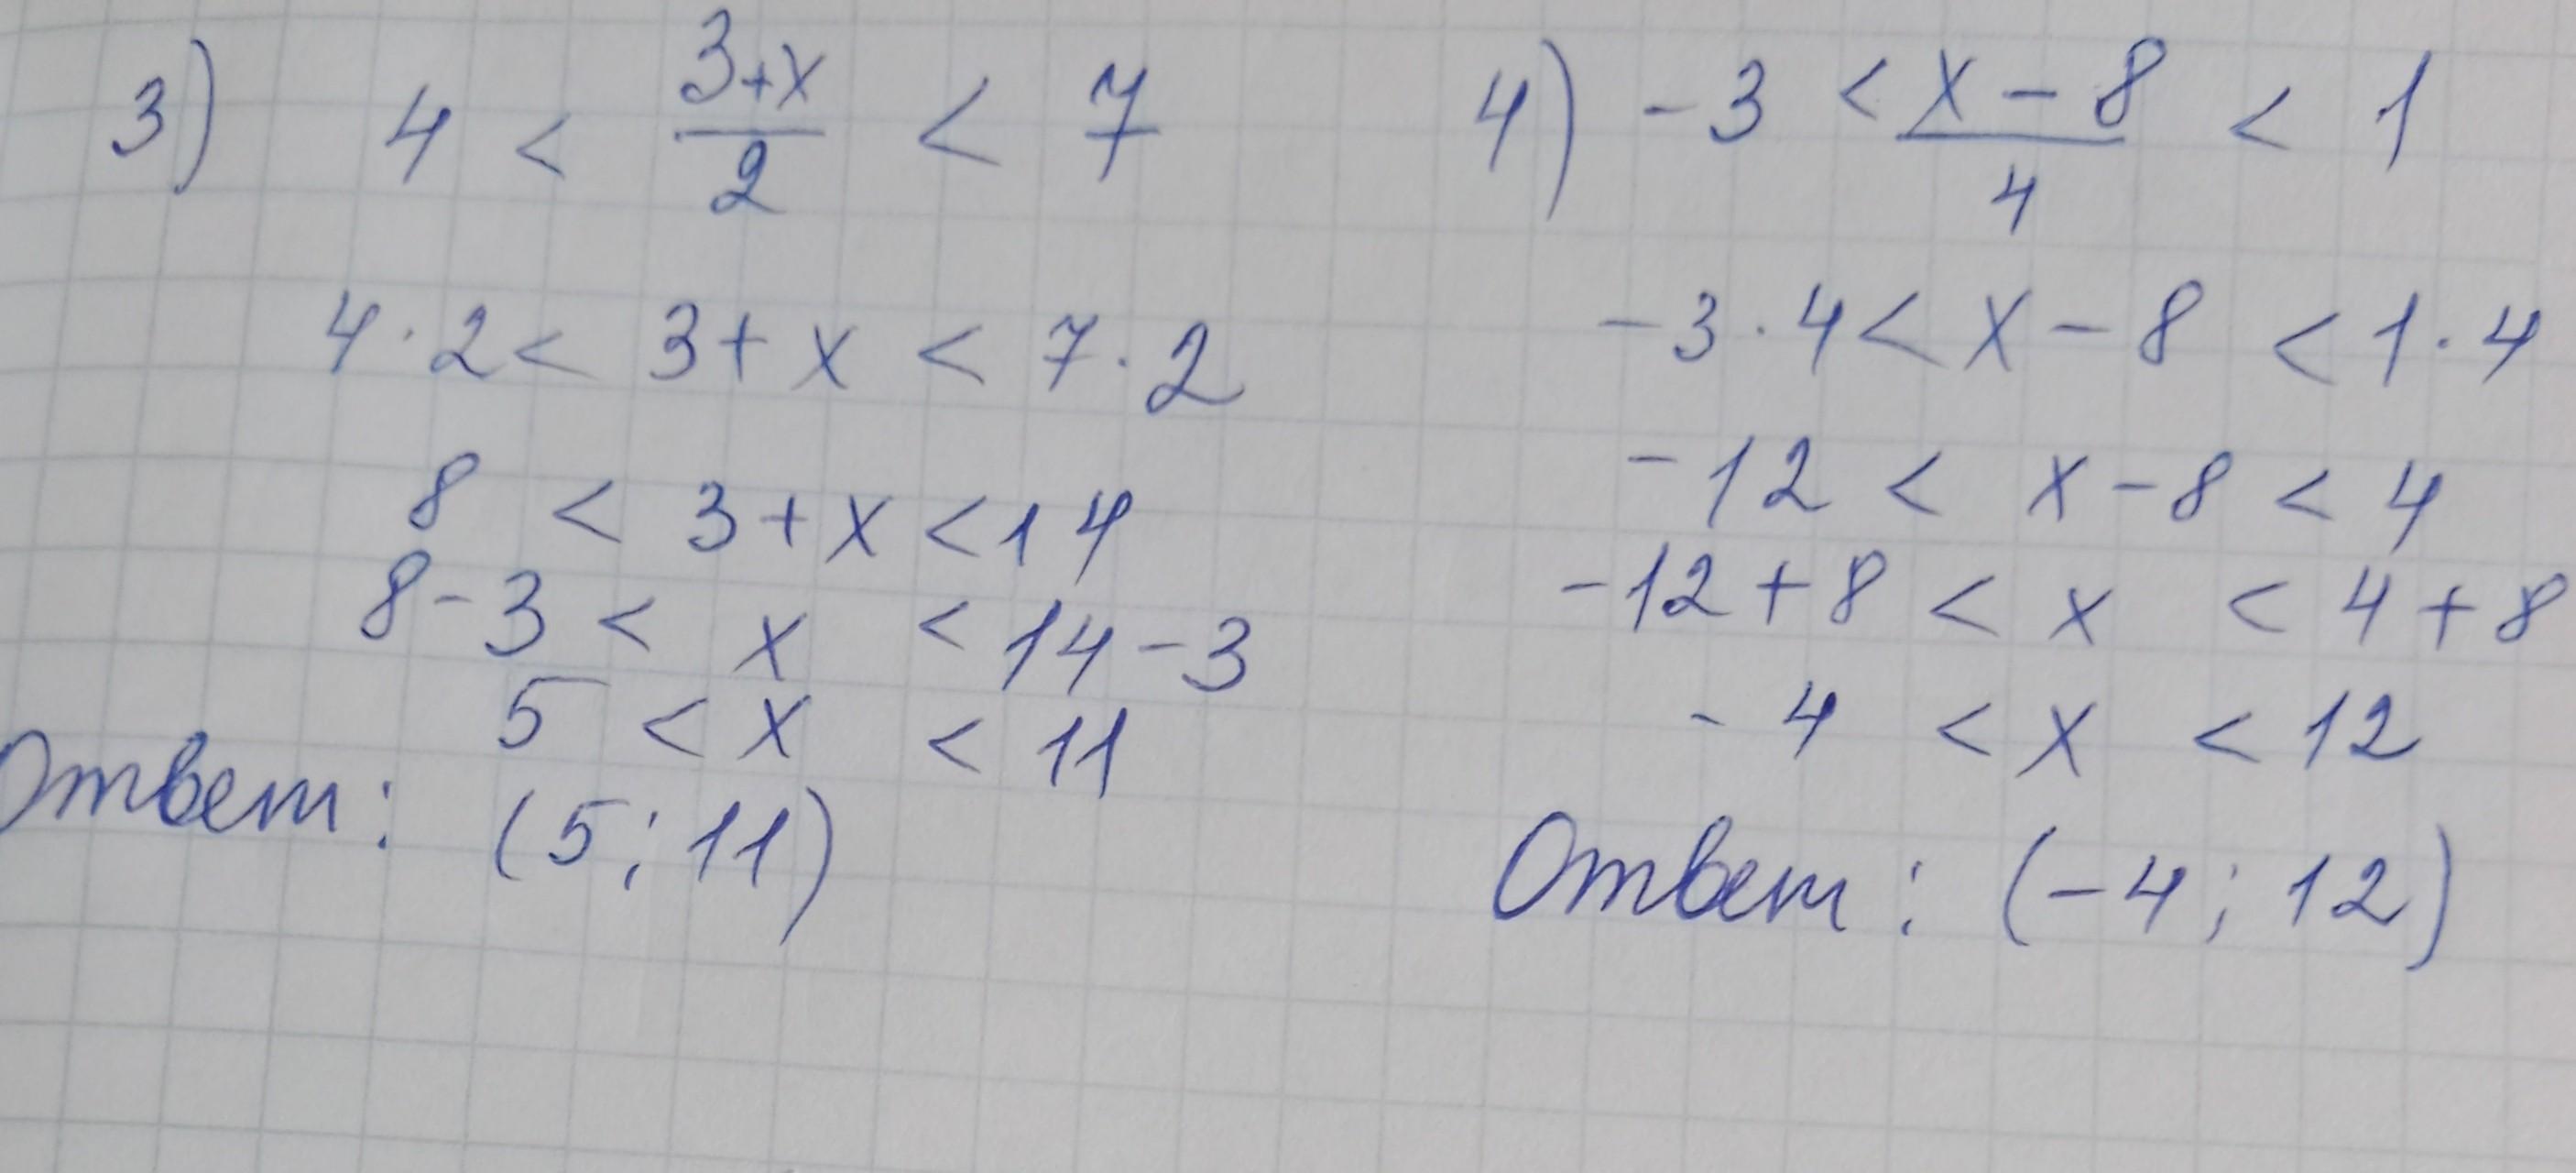 3) 4 < (3+x)/2 < 7
4 · 2 < 3 + x < 7 · 2
8 < 3 + x < 14
8 - 3 < x < 14 - 3
5 < x < 11
Ответ: (5; 11)
4) -3 < (x - 8)/4 < 1
-3 · 4 < x - 8 < 1 · 4
-12 < x - 8 < 4
-12 + 8 < x < 4 + 8
-4 < x < 12
Ответ: (-4; 12)